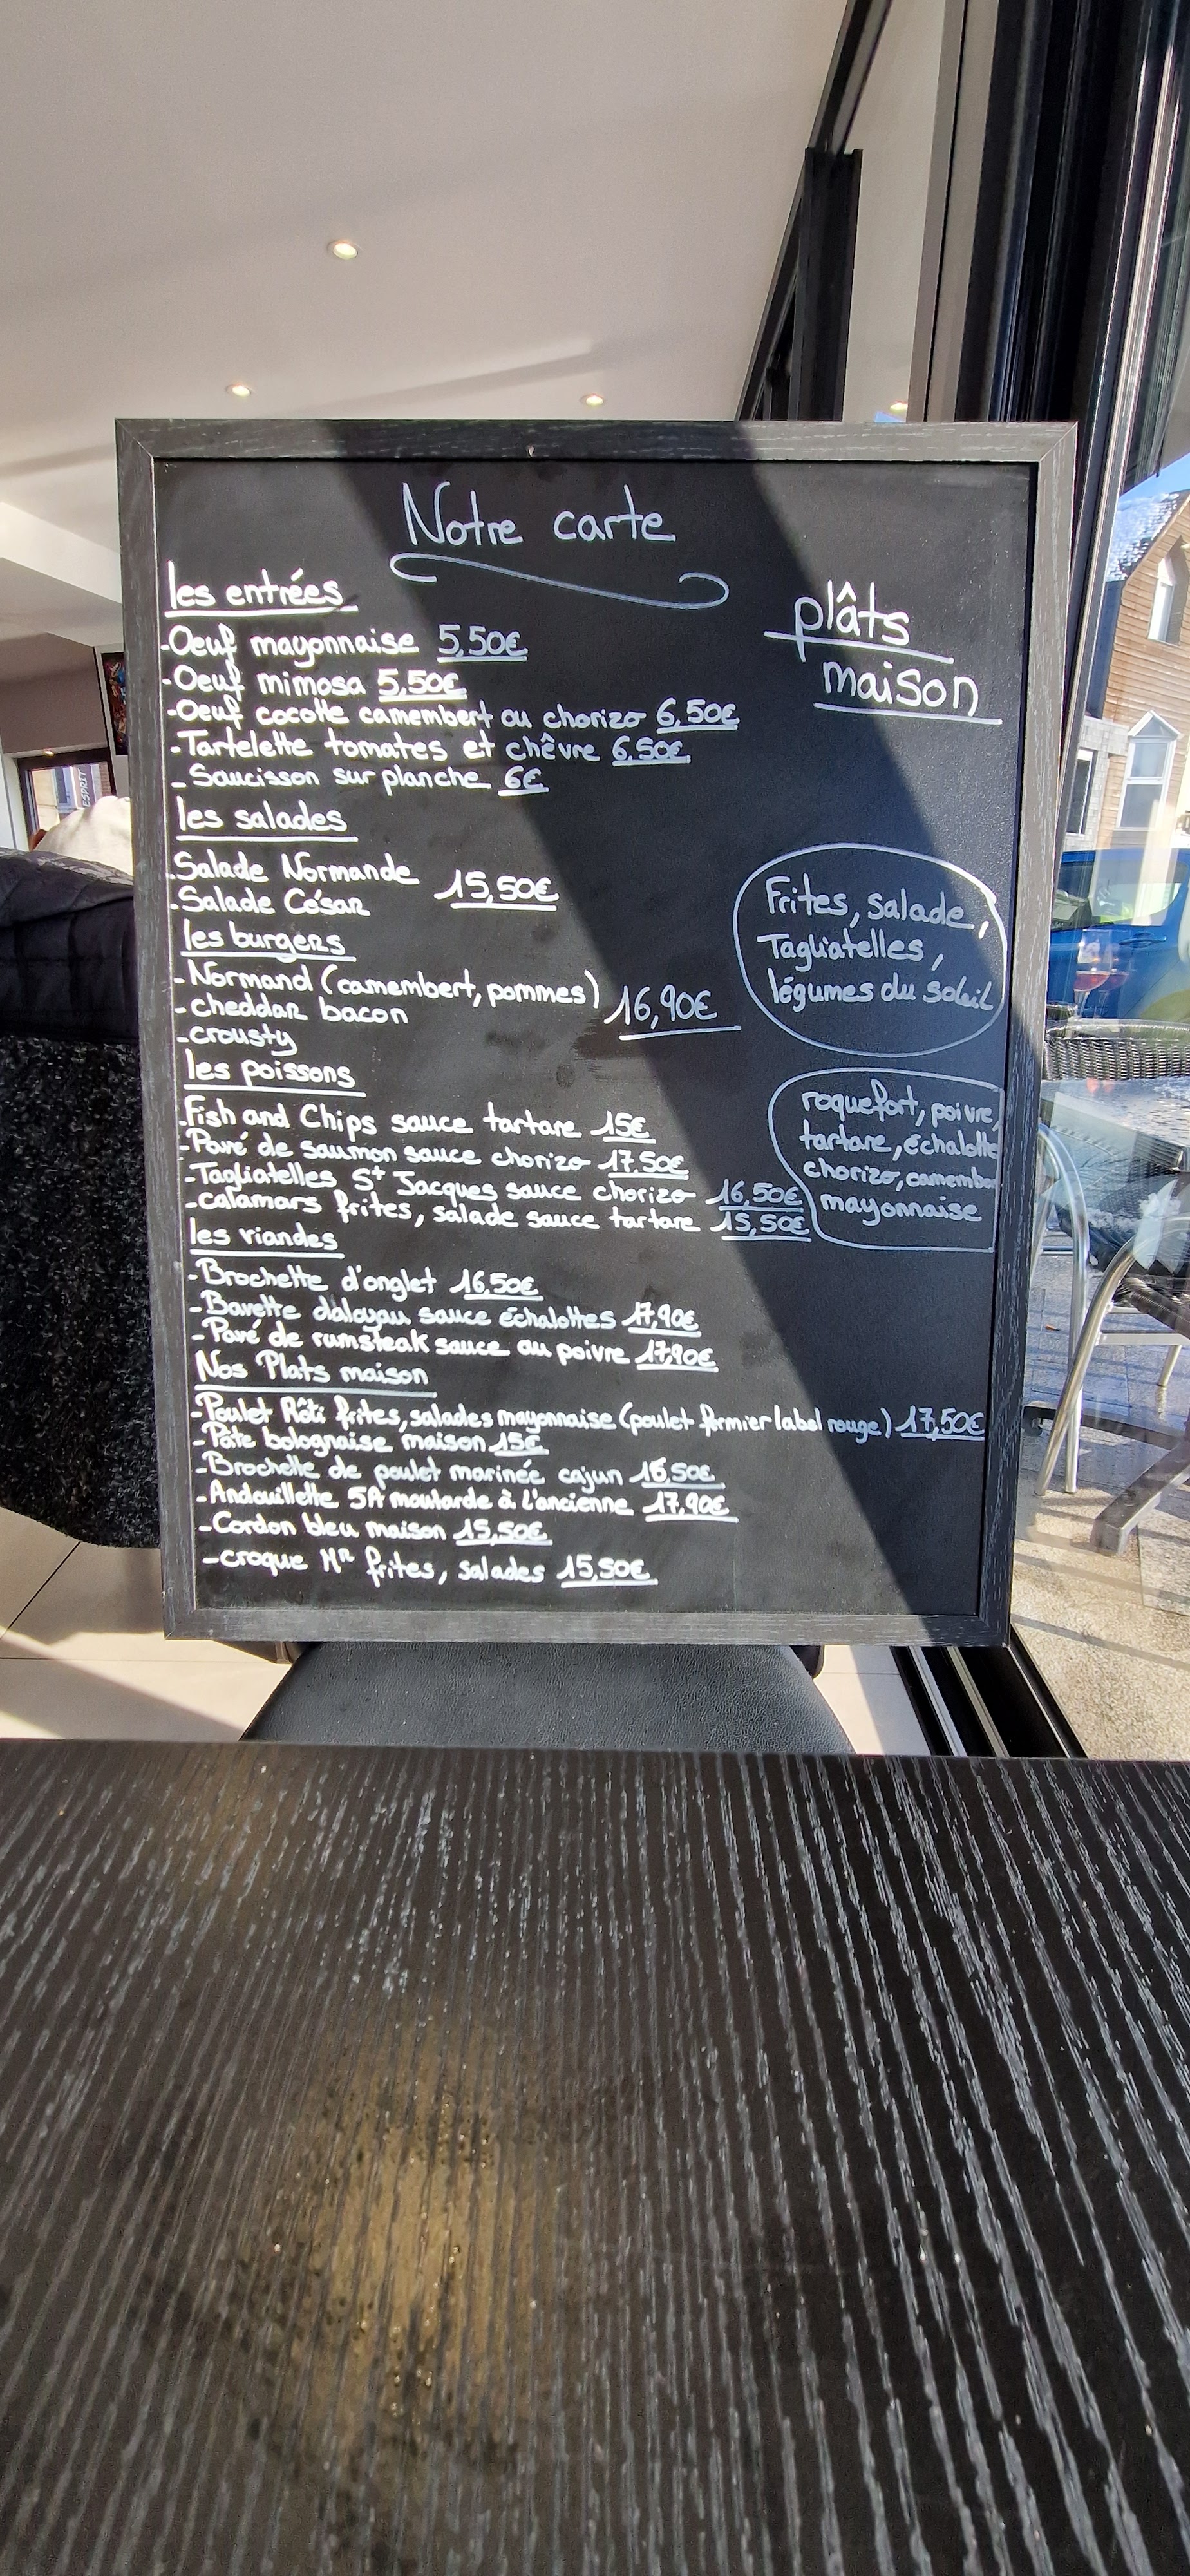 Notre carte
les entrées
-Oeuf mayonnaise 5,50€
-Oeuf mimosa 5,50€
-Oeuf cocotte camembert ou chorizo 6,50€
-Tartelette tomates et chêvre 6,50€
-Saucisson sur planche 6€
les salades
-Salade Normande
-Salade César
15,50€
les burgers
-Normand (camembert, pommes)
-cheddar bacon
-crousty
16,90€
les poissons
-Fish and Chips sauce tartare 15€
-Pavé de saumon sauce chorizo 17,50€
-Tagliatelles St Jacques sauce chorizo 16,50€
-calamars frites, salade sauce tartare 15,50€
les viandes
-Brochette d'onglet 16,50€
-Bavette d'aloyau sauce échalottes 17,90€
-Pavé de rumsteak sauce au poivre 17,90€
Nos Plats maison
-Poulet Rôti frites, salades mayonnaise (poulet fermier label rouge) 17,50€
-Pâte bolognaise maison 15€
-Brochette de poulet marinée cajun 16,50€
-Andouillette 5A moutarde à l'ancienne 17,90€
-Cordon bleu maison 15,50€
-croque Mr frites, salades 15,50€
plâts
maison
Frites, salade,
Tagliatelles,
légumes du soleil
roquefort, poivre,
tartare, échalotte
chorizo, camember
mayonnaise
ESPRIT